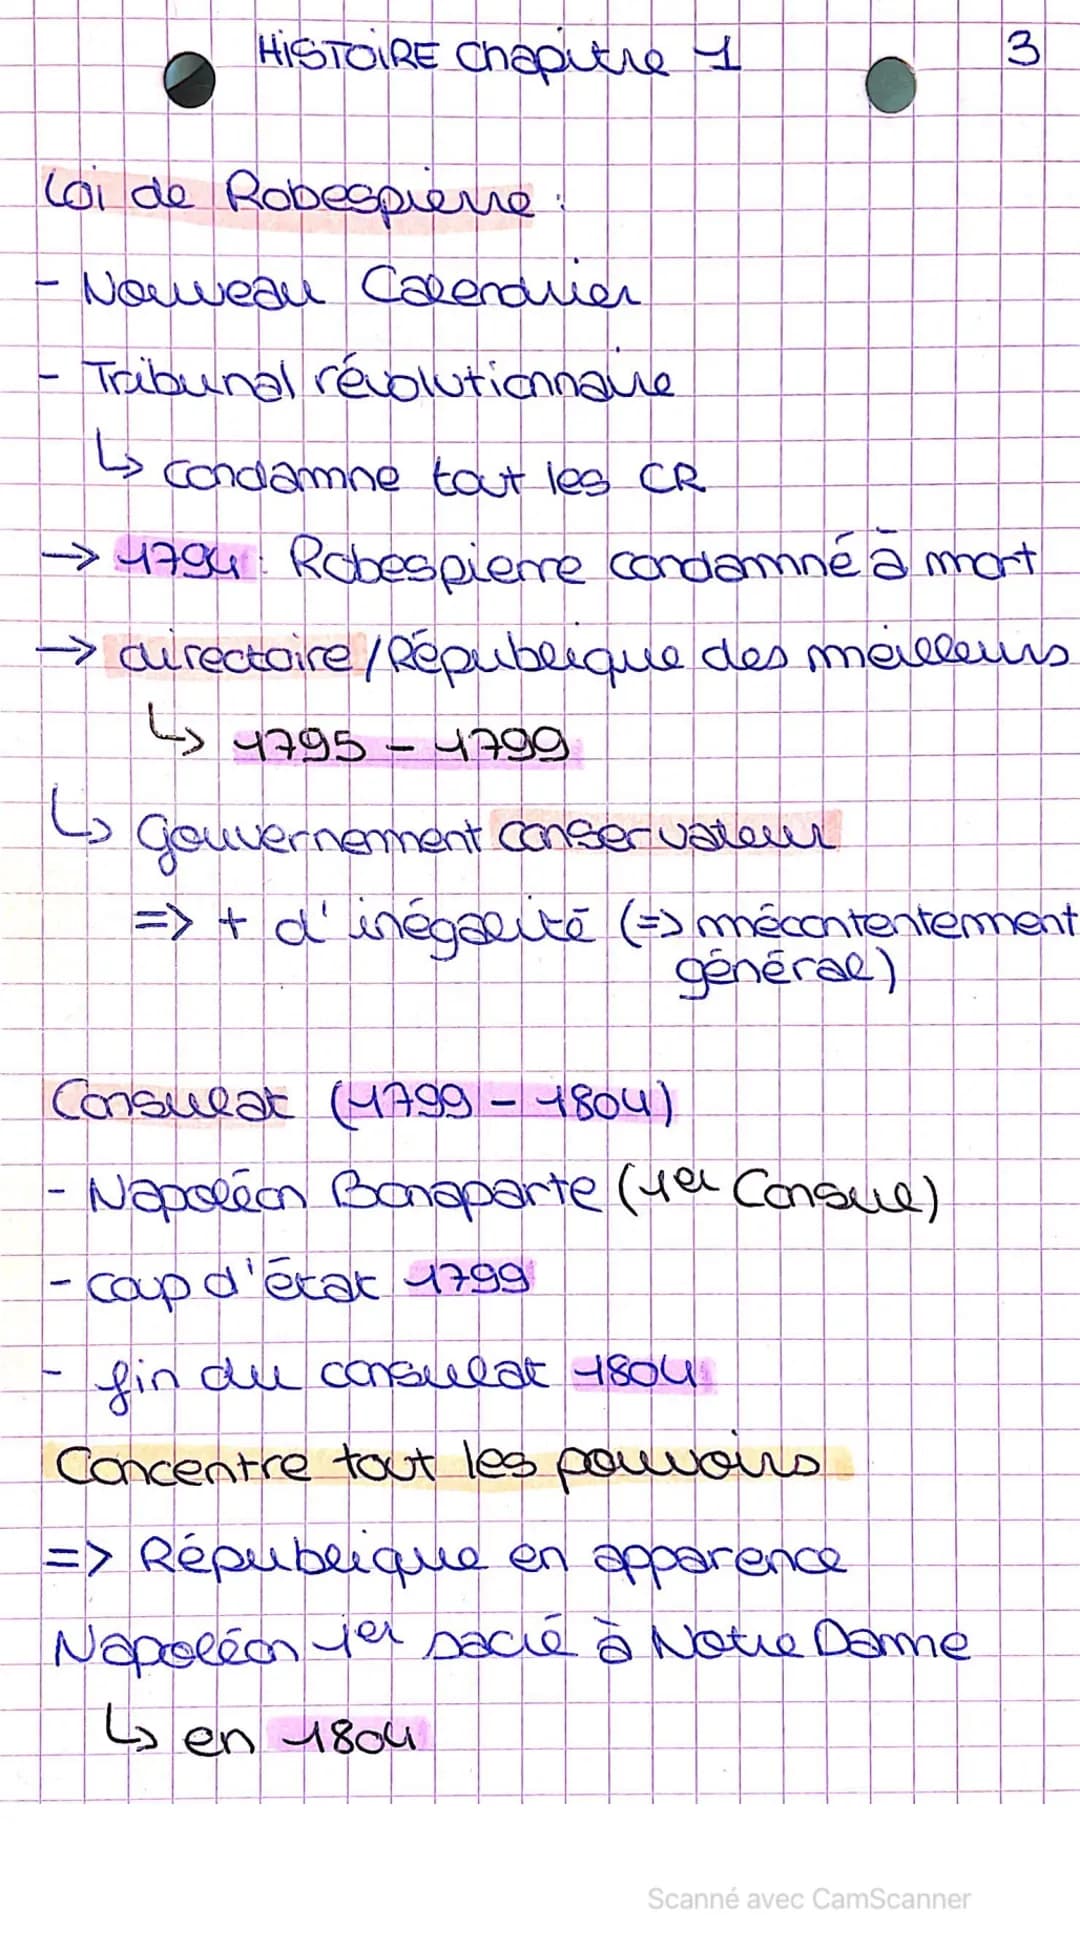 HISTOIRE Chapitre 1
3
Loi de Robespierre :
- Nouveau Calendrier
- Tribunal révolutionnaire
↳ condamne tout les CR
→ 1794 : Robespierre condamné à mort
→ directoire / République des meilleurs
↳ 1795 - 1799
↳ Gouvernement conservateur
=> + d'inégalité (=> mécontentement
général)
Consulat (1799 - 1804)
- Napoléon Bonaparte (1er Consul)
- coup d'état 1799
- fin du consulat 1804
Concentre tout les pouvoirs
=> République en apparence
Napoléon 1er sacré à Notre Dame
↳ en 1804
Scanné avec CamScanner